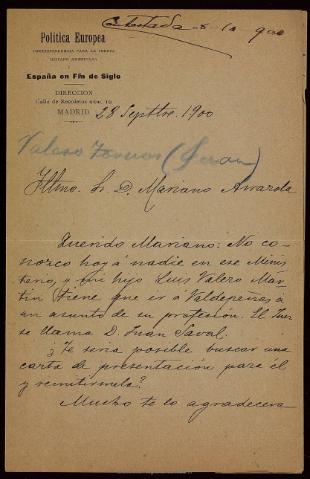 Contestada 8 10 900
Política Europea
CORRESPONDENCIA PARA LA PRENSA
HISPANO AMERICANA
Y
España en Fin de Siglo
DIRECCION
Calle de Recoletos núm. 10
MADRID
28 Septbre. 1900
Valero
Illmo. Sr. D. Mariano Arrazola
Querido Mariano: No co-
nozco hoy á nadie en ese Minis
terio, y mi hijo Luis Valero Mar-
tin tiene que ir á Valdepeñas á
un asunto de su profesion. El Juez
se llama D. Juan
¿Te seria posible buscar una
carta de presentación para él
y remitirmela?
Mucho te lo agradecera